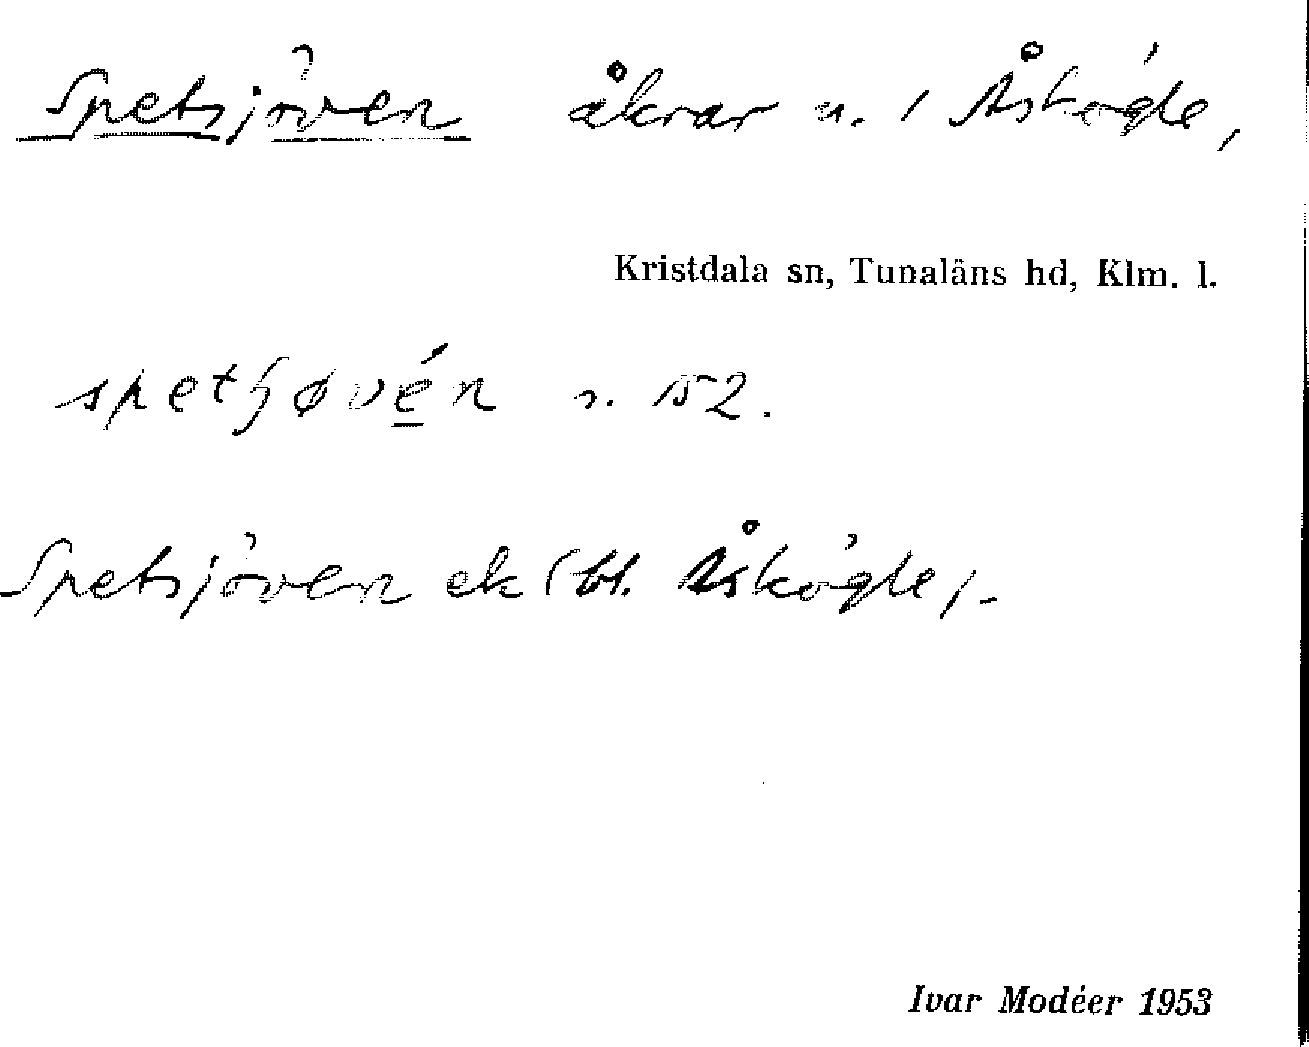 Spetsjöven åkrar n. i Åskögle,
Kristdala sn, Tunaläns hd, Klm. l.
spetʃøvén s. 152.
Spetsjöven ek (bl. Åskögle).-
Ivar Modéer 1953